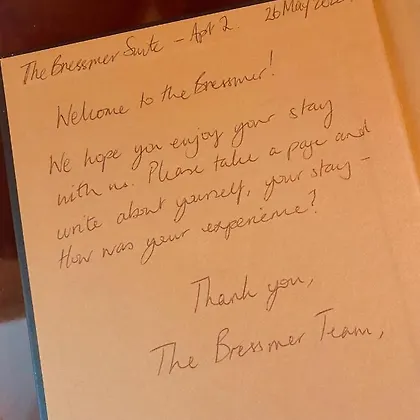 The Bressmer Suite - Apt 2. 26 May
Welcome to the Bressmer!
We hope you enjoy your stay
with us. Please take a page and
write about yourself, your stay -
How was your experience?
Thank you,
The Bressmer Team,